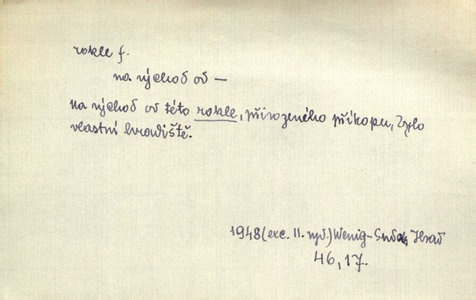 rokle f.
na východ od —
na východ od této rokle, přirozeného příkopu, bylo
vlastní hradiště.
1948 (exc. II. vyd.) Wenig- Hrad
46, 17.